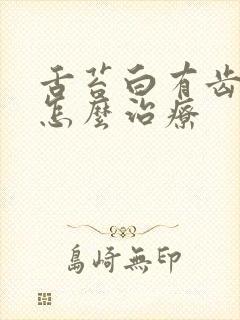 舌苔白有齿
怎麼治療
島崎無印